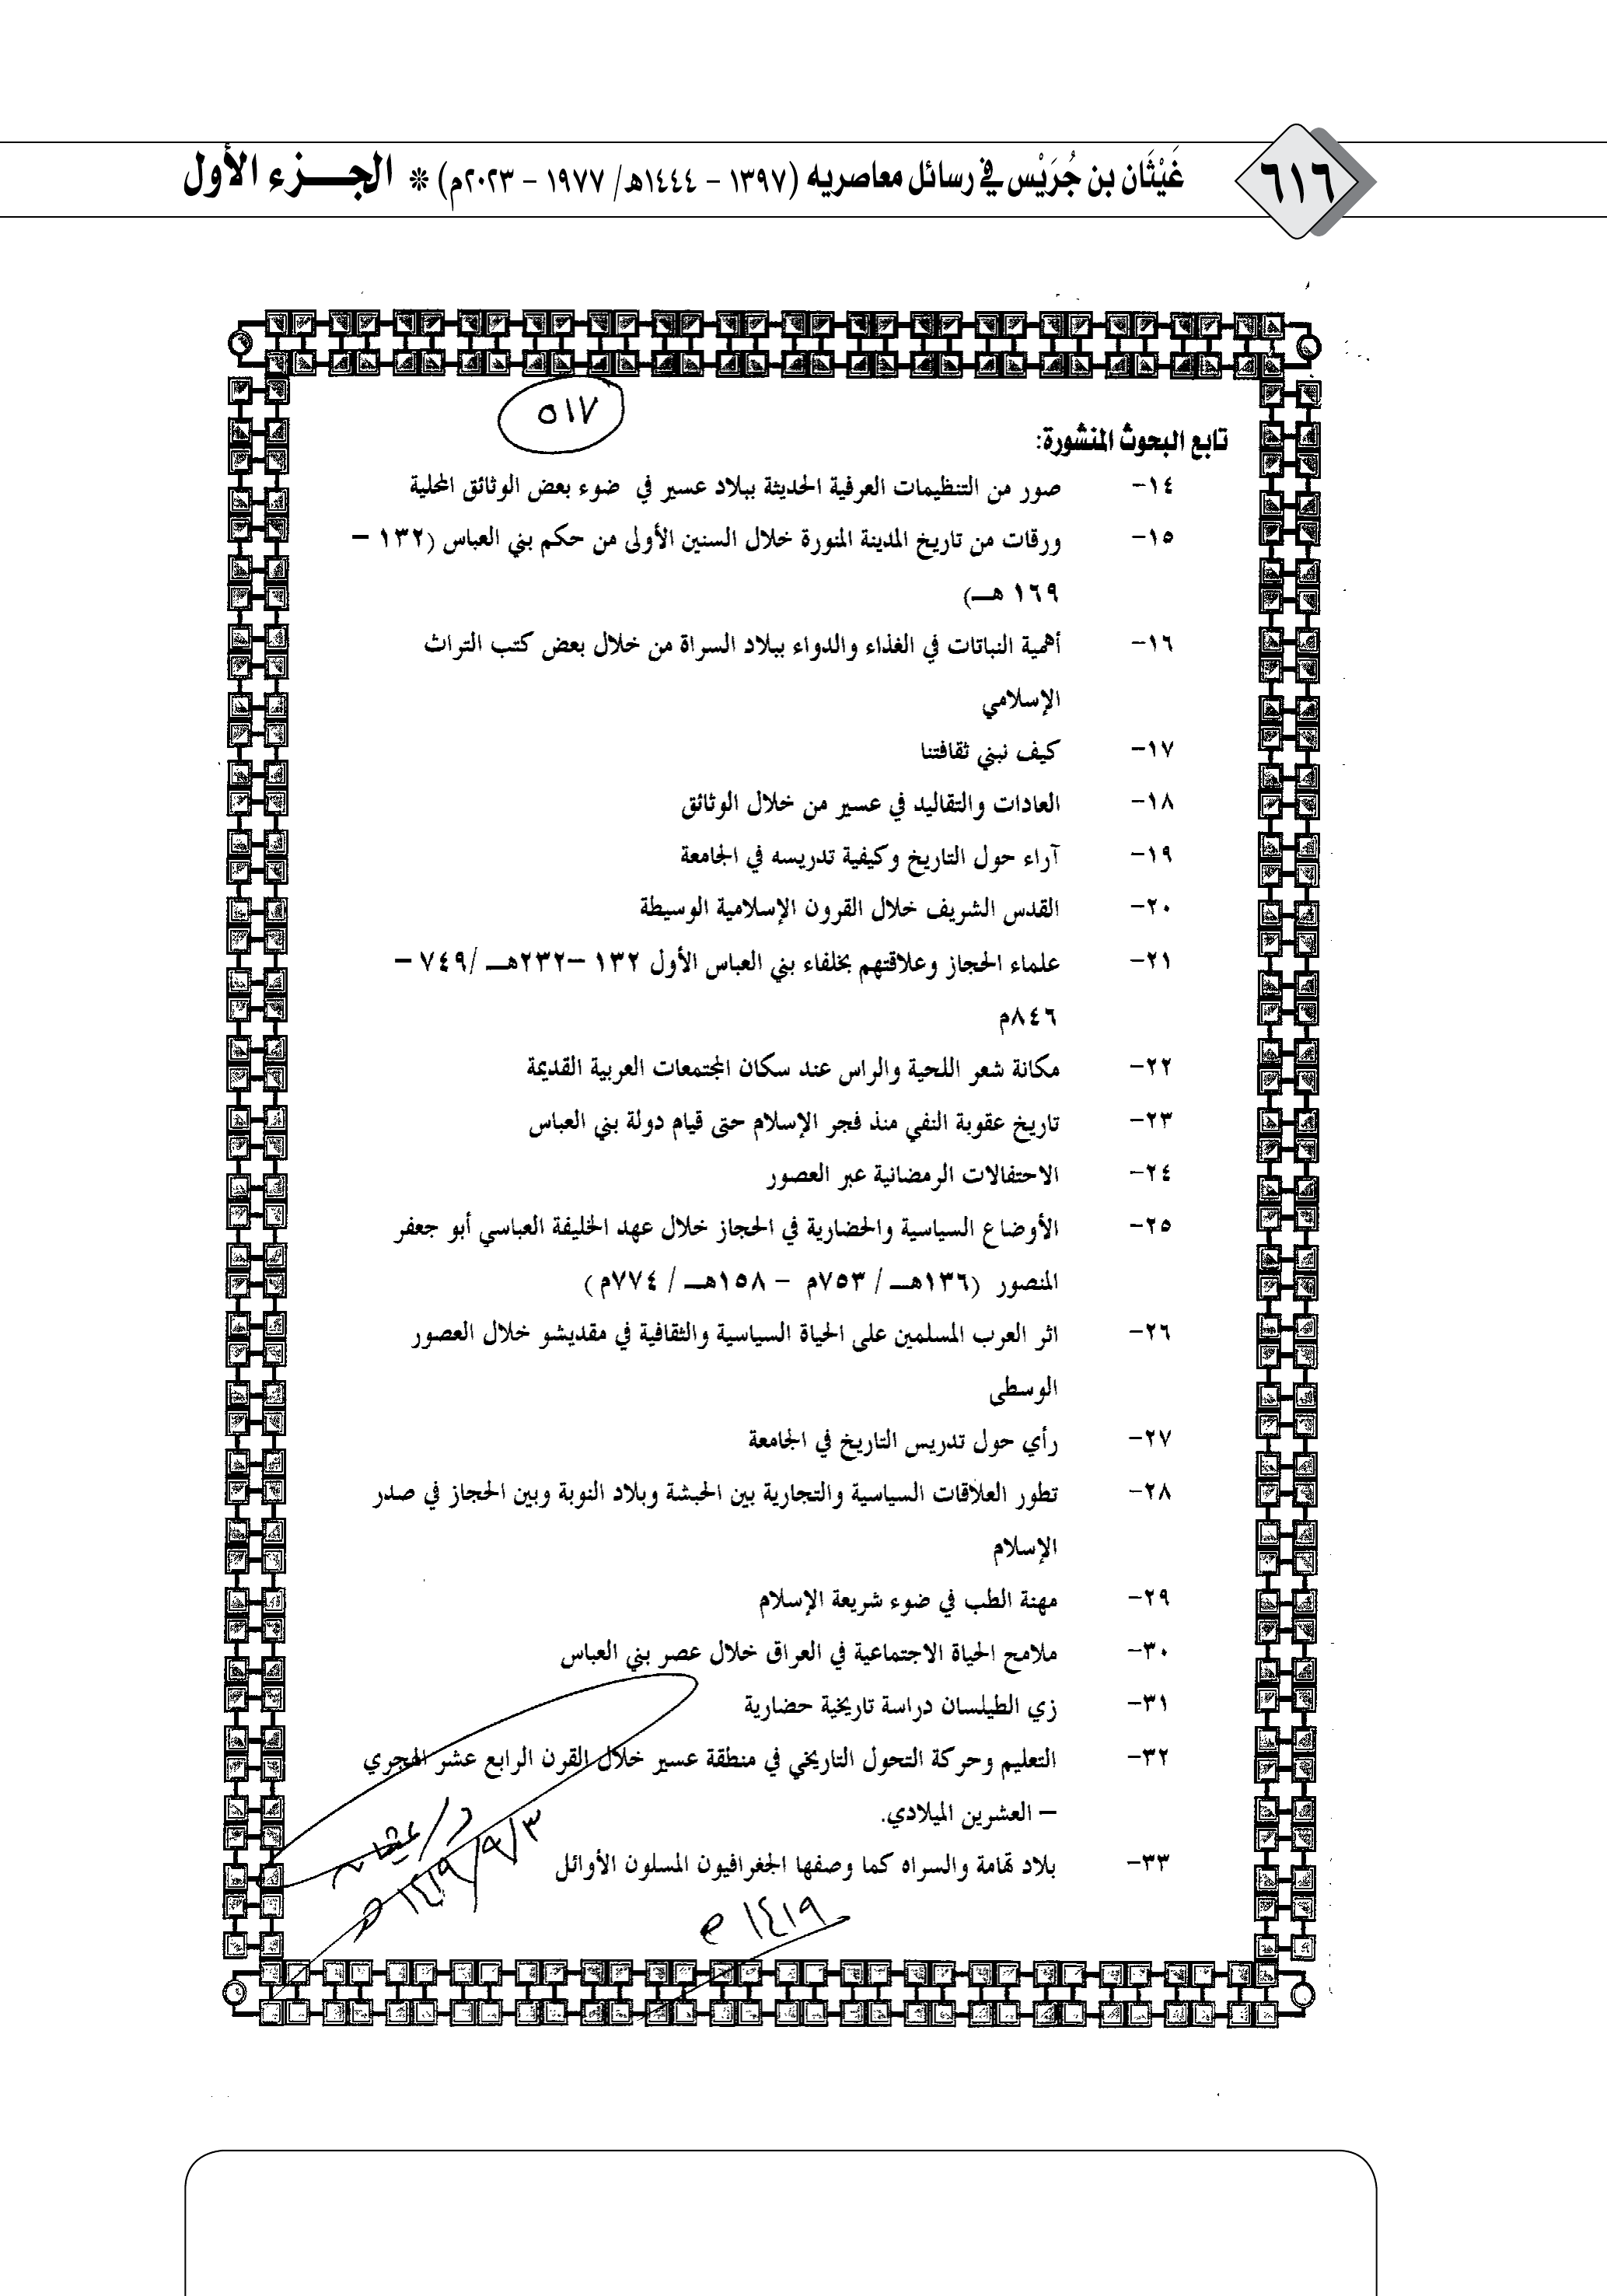 ٦١٦
غَيْثَان بن جُرَيْس في رسائل معاصريه (١٣٩٧ - ١٤٤٤هـ/ ١٩٧٧ - ٢٠٢٣م) * الجـــزء الأول
٥١٧
تابع البحوث المنشورة:
١٤- صور من التنظيمات العرفية الحديثة ببلاد عسير في ضوء بعض الوثائق المحلية
١٥- ورقات من تاريخ المدينة المنورة خلال السنين الأولى من حكم بني العباس (١٣٢ –
١٦٩ هــ)
١٦- أهمية النباتات في الغذاء والدواء ببلاد السراة من خلال بعض كتب التراث
الإسلامي
١٧- كيف نبني ثقافتنا
١٨- العادات والتقاليد في عسير من خلال الوثائق
١٩- آراء حول التاريخ وكيفية تدريسه في الجامعة
٢٠- القدس الشريف خلال القرون الإسلامية الوسيطة
٢١- علماء الحجاز وعلاقتهم بخلفاء بني العباس الأول ١٣٢ –٢٣٢هــ /٧٤٩ –
٨٤٦م
٢٢- مكانة شعر اللحية والراس عند سكان المجتمعات العربية القديمة
٢٣- تاريخ عقوبة النفي منذ فجر الإسلام حتى قيام دولة بني العباس
٢٤- الاحتفالات الرمضانية عبر العصور
٢٥- الأوضاع السياسية والحضارية في الحجاز خلال عهد الخليفة العباسي أبو جعفر
المنصور (١٣٦هــ / ٧٥٣م – ١٥٨هــ / ٧٧٤م )
٢٦- اثر العرب المسلمين على الحياة السياسية والثقافية في مقديشو خلال العصور
الوسطى
٢٧- رأي حول تدريس التاريخ في الجامعة
٢٨- تطور العلاقات السياسية والتجارية بين الحبشة وبلاد النوبة وبين الحجاز في صدر
الإسلام
٢٩- مهنة الطب في ضوء شريعة الإسلام
٣٠- ملامح الحياة الاجتماعية في العراق خلال عصر بني العباس
٣١- زي الطيلسان دراسة تاريخية حضارية
٣٢- التعليم وحركة التحول التاريخي في منطقة عسير خلال القرن الرابع عشر الهجري
– العشرين الميلادي.
٣٣- بلاد تهامة والسراه كما وصفها الجغرافيون المسلون الأوائل
د/ غيثان
٣/٩/١٤١٩هـ
١٤١٩هـ